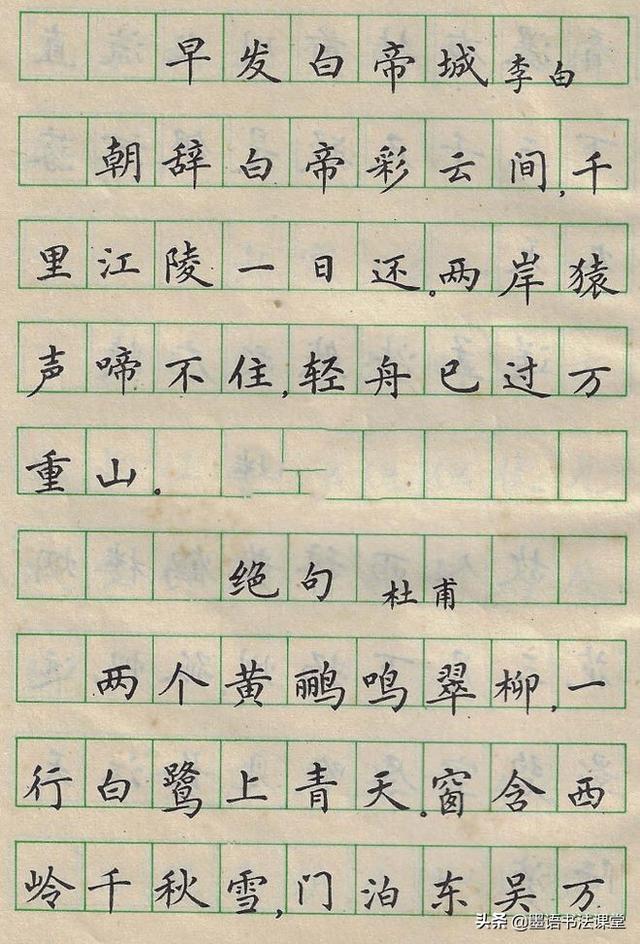 早发白帝城 李白
朝辞白帝彩云间,千
里江陵一日还。两岸猿
声啼不住,轻舟已过万
重山。
绝句 杜甫
两个黄鹂鸣翠柳,一
行白鹭上青天。窗含西
岭千秋雪,门泊东吴万
头条 @墨语书法课堂